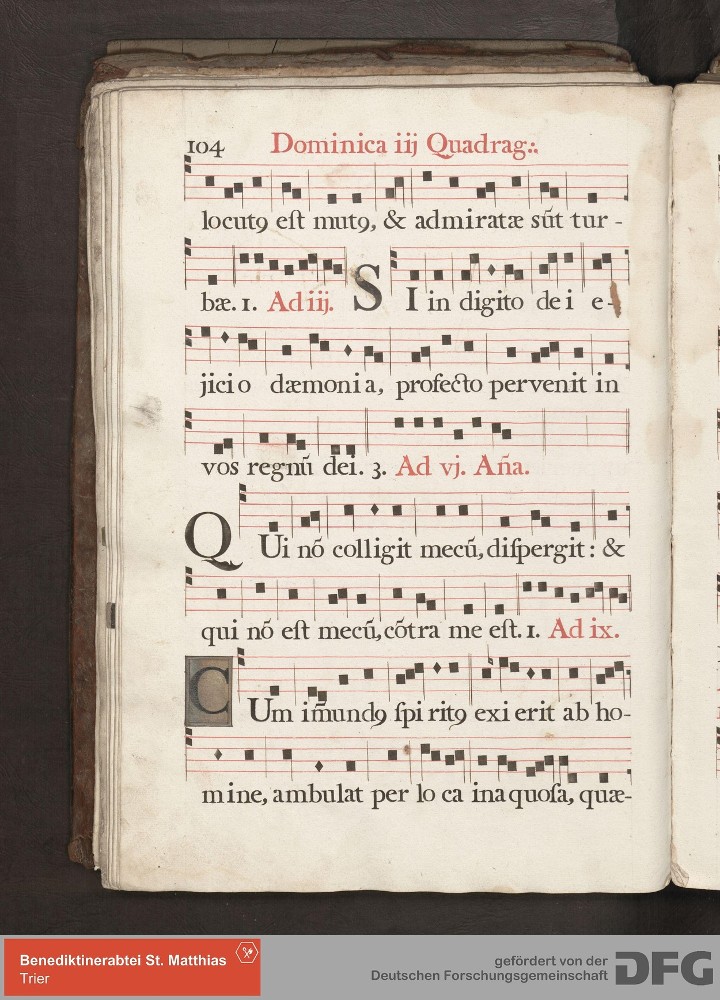 104 Dominica iij Quadrag:.
locutꝯ eſt mutꝯ, & admiratæ sūt tur -
bæ. 1. Ad iij. SI in digito dei e-
jicio dæmonia, profecto pervenit in
vos regnū dei. 3. Ad vj. Aña.
QUi nō colligit mecū, diſpergit: &
qui nō eſt mecū, cōtra me eſt. 1. Ad ix.
CUm im̄undꝯ ſpiritꝯ exierit ab ho-
mine, ambulat per loca inaquoſa, quæ-
Benediktinerabtei St. Matthias
Trier
gefördert von der
Deutschen Forschungsgemeinschaft
DFG